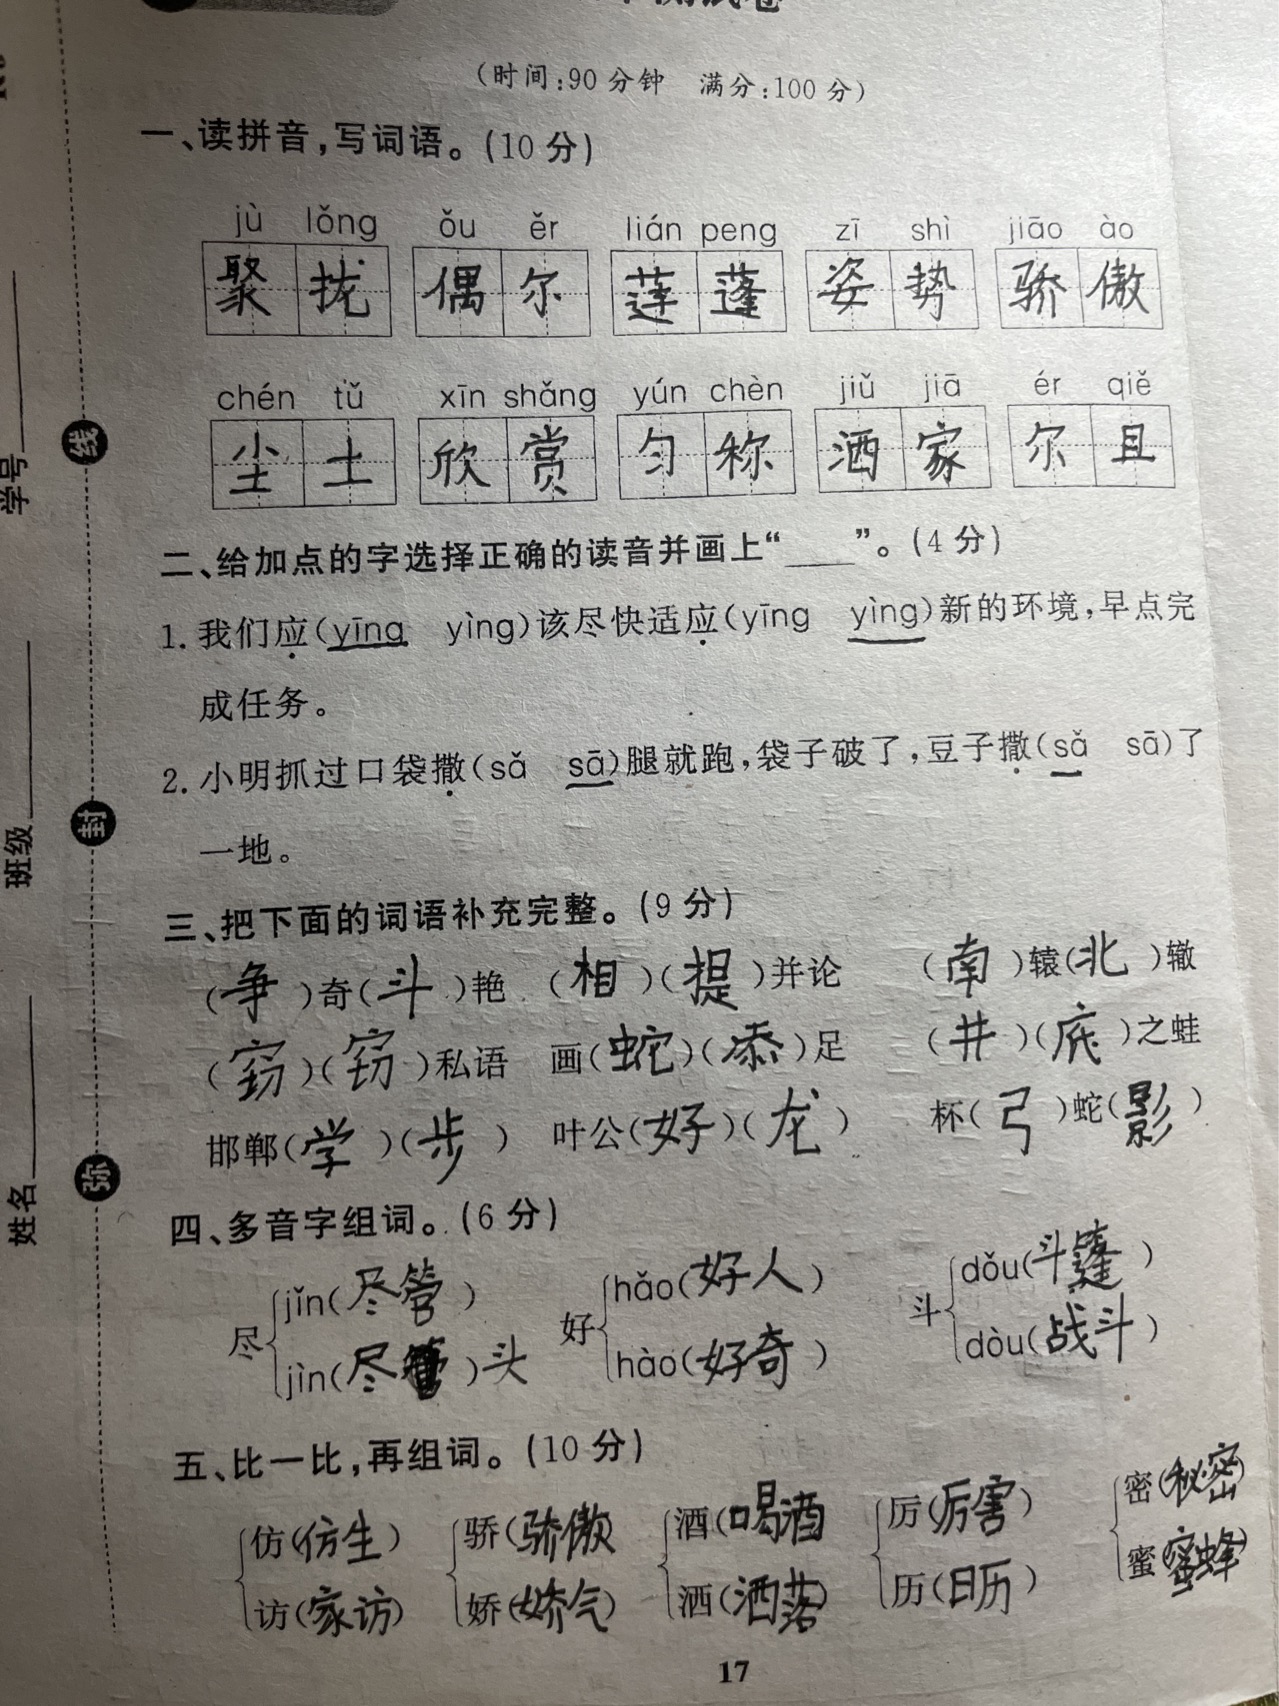 测试卷
(时间:90分钟 满分:100分)
一、读拼音,写词语。(10分)
jù lǒng ǒu ěr lián peng zī shì jiāo ào
聚拢 偶尔 莲蓬 姿势 骄傲
chén tǔ xīn shǎng yún chèn jiǔ jiā ér qiě
尘土 欣赏 匀称 酒家 尔且
二、给加点的字选择正确的读音并画上“____”。(4分)
1.我们应(yīng yìng)该尽快适应(yīng yìng)新的环境,早点完
成任务。
2.小明抓过口袋撒(sǎ sā)腿就跑,袋子破了,豆子撒(sǎ sā)了
一地。
三、把下面的词语补充完整。(9分)
(争)奇(斗)艳 (相)(提)并论 (南)辕(北)辙
(窃)(窃)私语 画(蛇)(添)足 (井)(底)之蛙
邯郸(学)(步) 叶公(好)(龙) 杯(弓)蛇(影)
四、多音字组词。(6分)
尽 jǐn(尽管) 好 hǎo(好人) 斗 dǒu(斗篷)
jìn(尽)头 hào(好奇) dòu(战斗)
五、比一比,再组词。(10分)
仿(仿生) 骄(骄傲) 酒(喝酒) 厉(厉害) 密(秘密)
访(家访) 娇(娇气) 洒(洒落) 历(日历) 蜜(蜜蜂)
17
学号
班级
姓名
线
封
弥